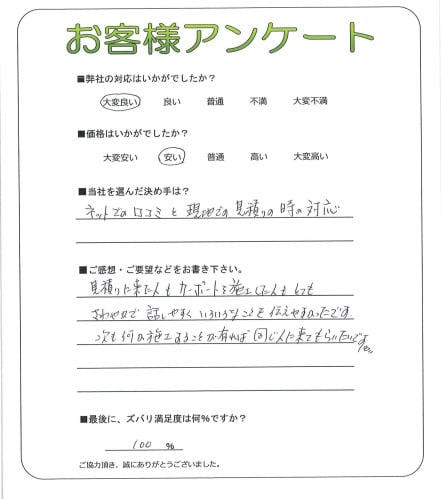 お客様アンケート
■弊社の対応はいかがでしたか？
大変良い 良い 普通 不満 大変不満
■価格はいかがでしたか？
大変安い 安い 普通 高い 大変高い
■当社を選んだ決め手は？
ネットでの口コミと現地での見積りの時の対応
■ご感想・ご要望などをお書き下さい。
見積りに来た人もカーポートを施工した人もとても
さわやかで話しやすくいろいろなことを伝えやすかったです
次も何か施工することが有れば同じ人に来てもらいたいです
■最後に、ズバリ満足度は何%ですか？
100 %
ご協力頂き、誠にありがとうございました。